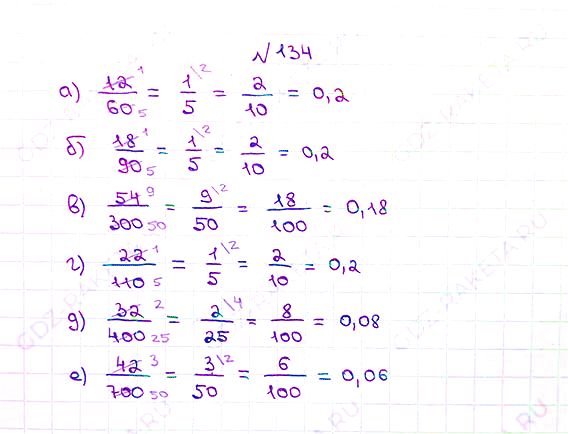 № 134
а) 12¹/60₅ = 1\²/5 = 2/10 = 0,2
б) 18¹/90₅ = 1\²/5 = 2/10 = 0,2
в) 54⁹/300₅₀ = 9\²/50 = 18/100 = 0,18
г) 22¹/110₅ = 1\²/5 = 2/10 = 0,2
д) 32²/400₂₅ = 2\⁴/25 = 8/100 = 0,08
е) 42³/700₅₀ = 3\²/50 = 6/100 = 0,06
GDZ-RAKETA.RU